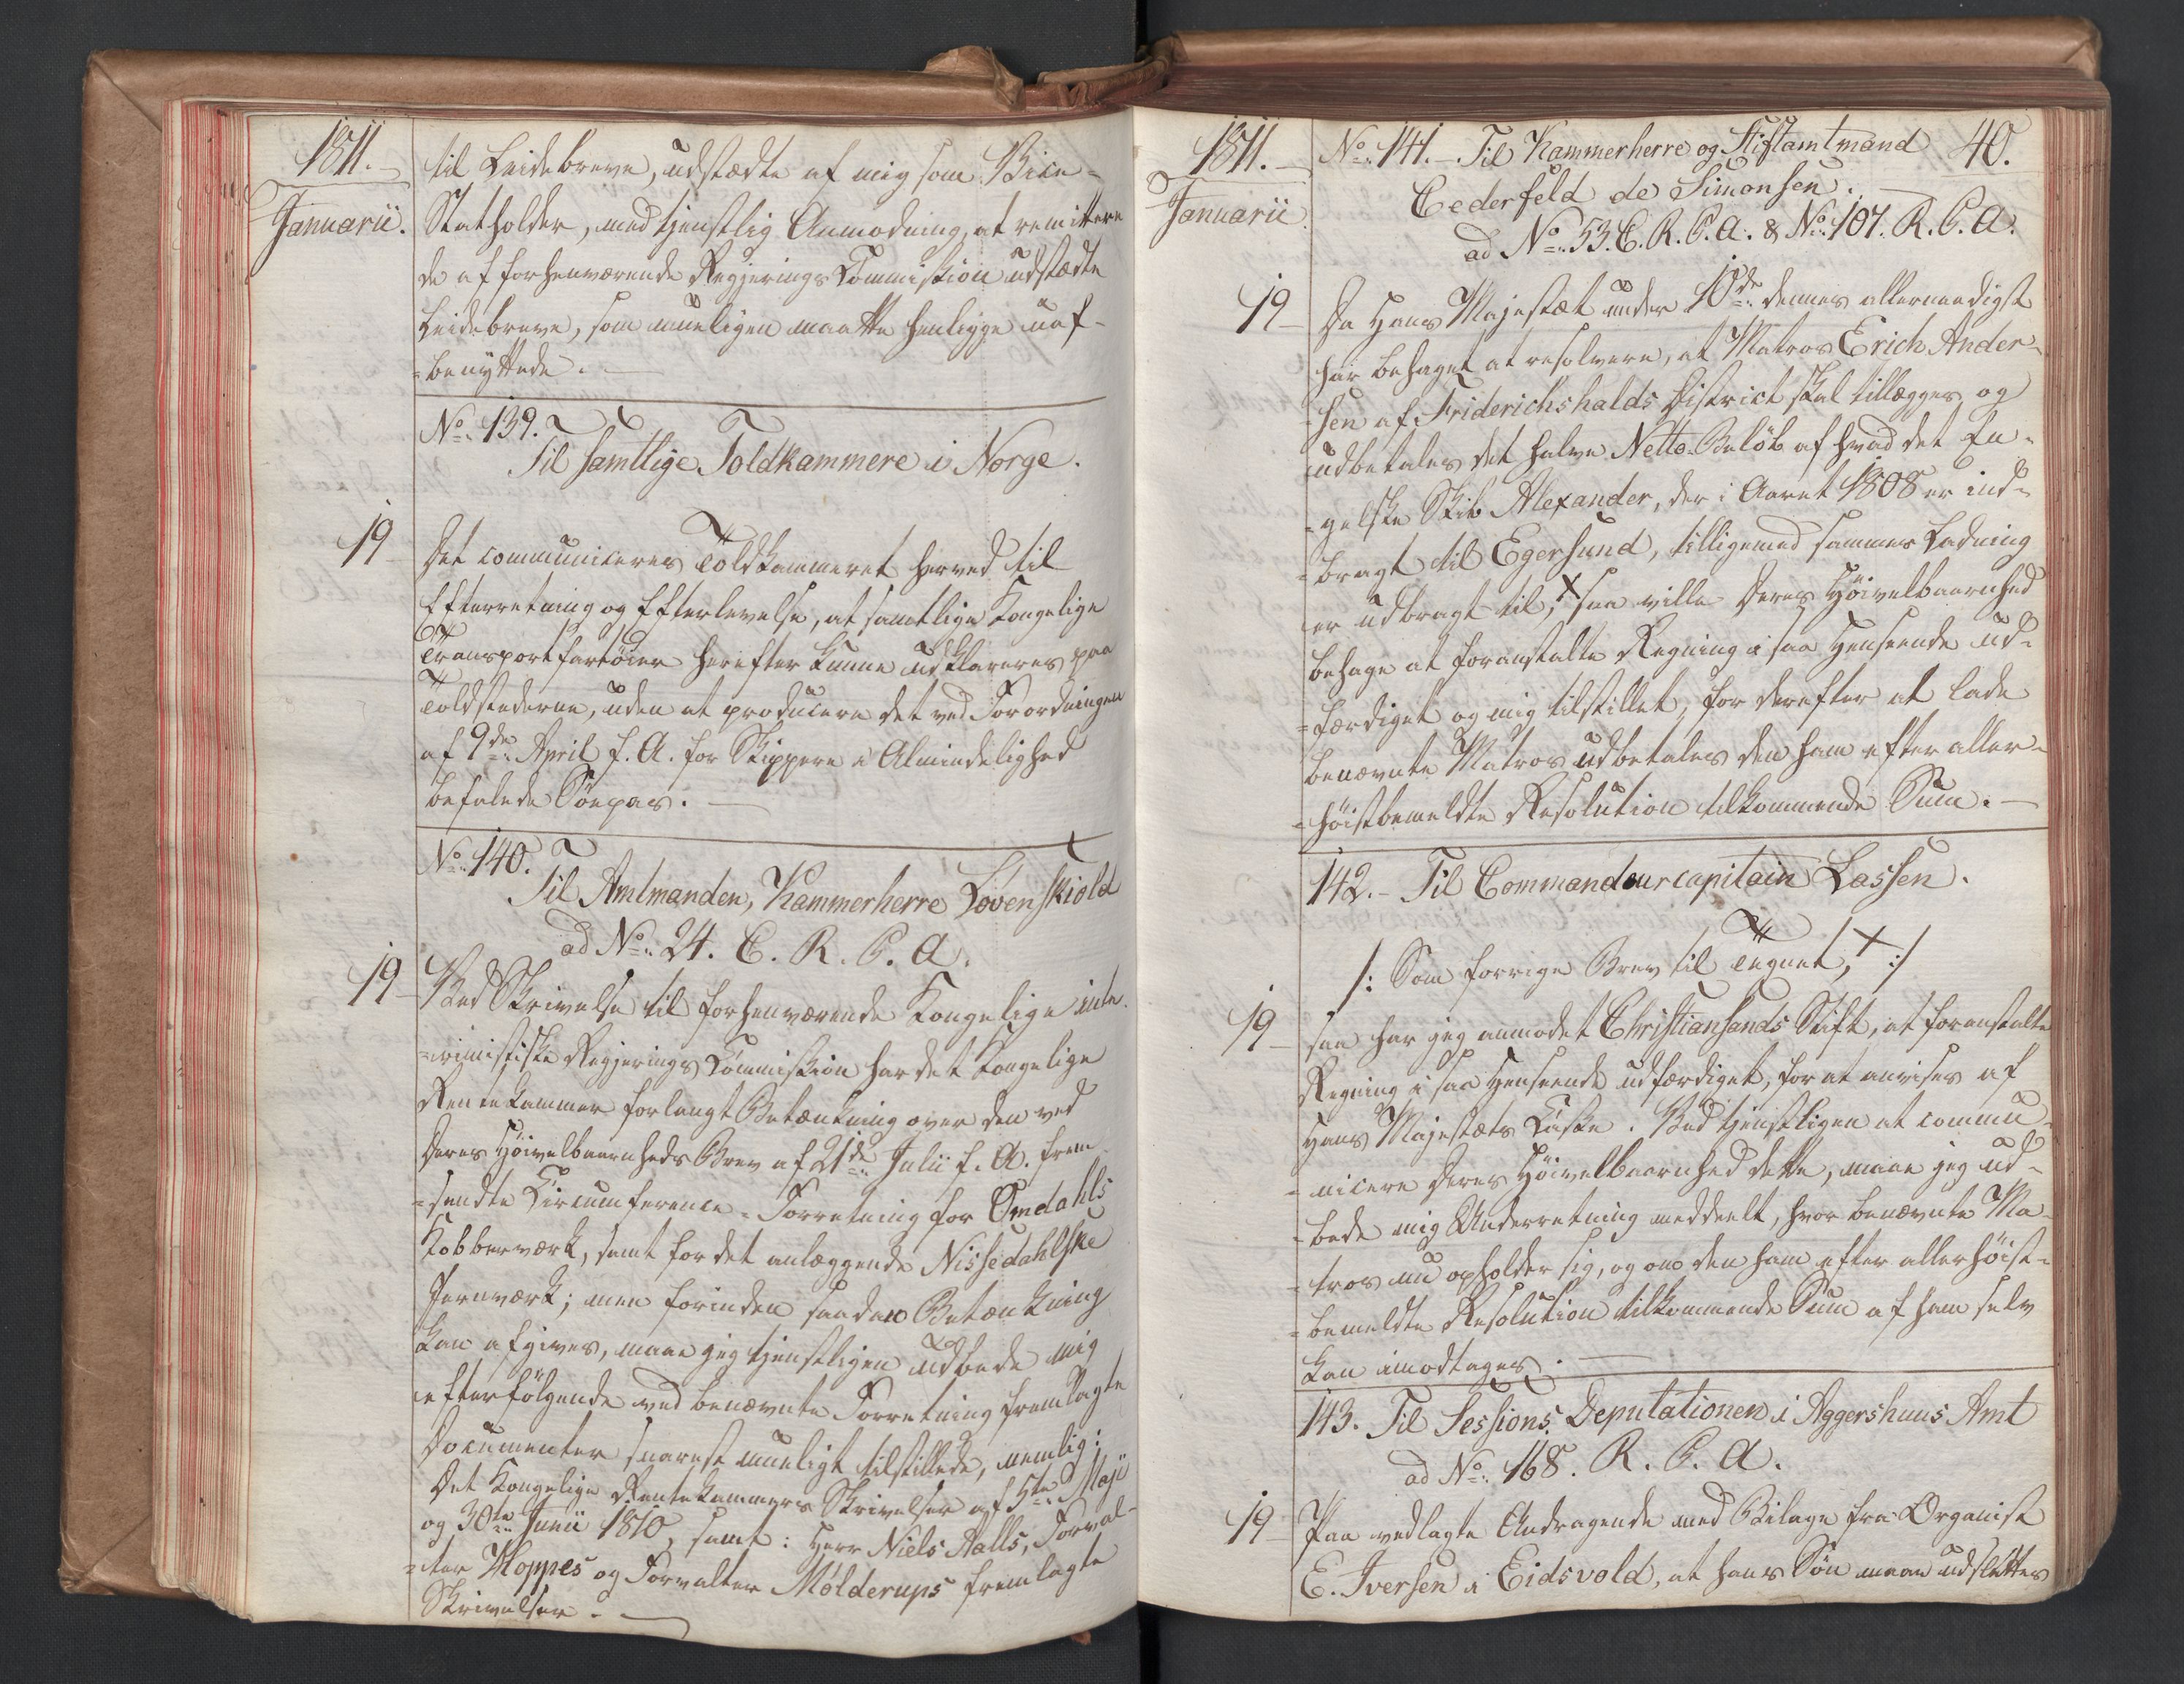 1811.
Januarii.
til Leidebreve, udstædte af mig som Vice-
Statholder, med tjenstlig Anmodning, at remittere
de af forhenværende Regjerings Commission udstædte
Leidebreve, som mueligen maatte henligge uaf-
=benyttede.
No. 139.
Til samtlige Toldkammere i Norge.
19
Det communiceres Toldkammeret herved til
Efterretning og Efterlevelse, at samtlige Kongelige
Transportfartøier herefter kunne udklareres paa
Toldstederne, uden at producere det ved Forordningen
af 9de April f. A. for Skippere i Almindelighed
befalede Söepas.
No. 140.
Til Amtmanden, Kammerherre Løvenskiold
ad No. 24. C. R. C. A.
19
Ved Skrivelse til forhenværende Kongelige inte-
=rimistiske Regjerings Commission har det Kongelige
Rentekammer forlangt Betænkning over den ved
Deres Höivelbaarenheds Brev af 21de Julii f. A. frem-
=sendte Circumference-Forretning for Omdahls
Kobberværk, samt for det anlæggende Nissedahlske
Jernværk; men forinden saadan Betænkning
kan afgives, maae jeg tjenstligen udbede mig
efterfölgende ved benævnte Forretning fremlagte
Documenter snarest mueligt tilstillede, nemlig:
Det Kongelige Rentekammers Skrivelser af 5te Maji
og 30te Junii 1810, samt: Herr Niels Aalls, Forval-
=ter Hoppes og Forvalter Mölderups fremlagte
Skrivelser.
1811.
Januarii.
No. 141. Til Kammerherre og Stiftamtmand
40.
Cederfeld de Simonsen.
ad No. 53. C. R. C. A. & No. 107. R. C. A.
19
Da Hans Majestæt under 10de dennes allernaadigst
har behaget at resolvere, at Matros Erich Ander-
=sen af Friderichshalds District skal tillægges og
udbetales det halve Netto-Belöb af hvad det En-
=gelske Skib Alexander, der i Aaret 1808 er ind-
=bragt til Egersund, tilligemed sammes Ladning
er udbragt til, X saa ville Deres Höivelbaarnhed
behage at foranstalte Regning i saa Henseende ud-
=færdiget og mig tilstillet, for derefter at lade
benævnte Matros udbetales den ham efter aller-
=höistbemeldte Resolution tilkommende Sum.
142. Til Commandeurcapitain Lassen.
/: Som forrige Brev til Tegnet, X :/
19
saa har jeg anmodet Christiansands Stift, at foranstalte
Regning i saa Henseende udfærdiget, for at anvises af
Hans Majestæts Casse. Ved tjenstligen at commu-
=nicere Deres Höivelbaarnhed dette, maae jeg ud-
=bede mig Underretning meddeelt, hvor benævnte Ma-
=tros nu opholder sig, og om den ham efter allerhöist-
=bemeldte Resolution tilkommende Sum af ham selv
kan imodtages.
143. Til Sessions Deputationen i Aggershuus Amt
ad No. 168. R. C. A.
19
Paa vedlagte Andragende med Bilage fra Organist
E. Iversen i Eidsvold, at hans Sön maae udslettes